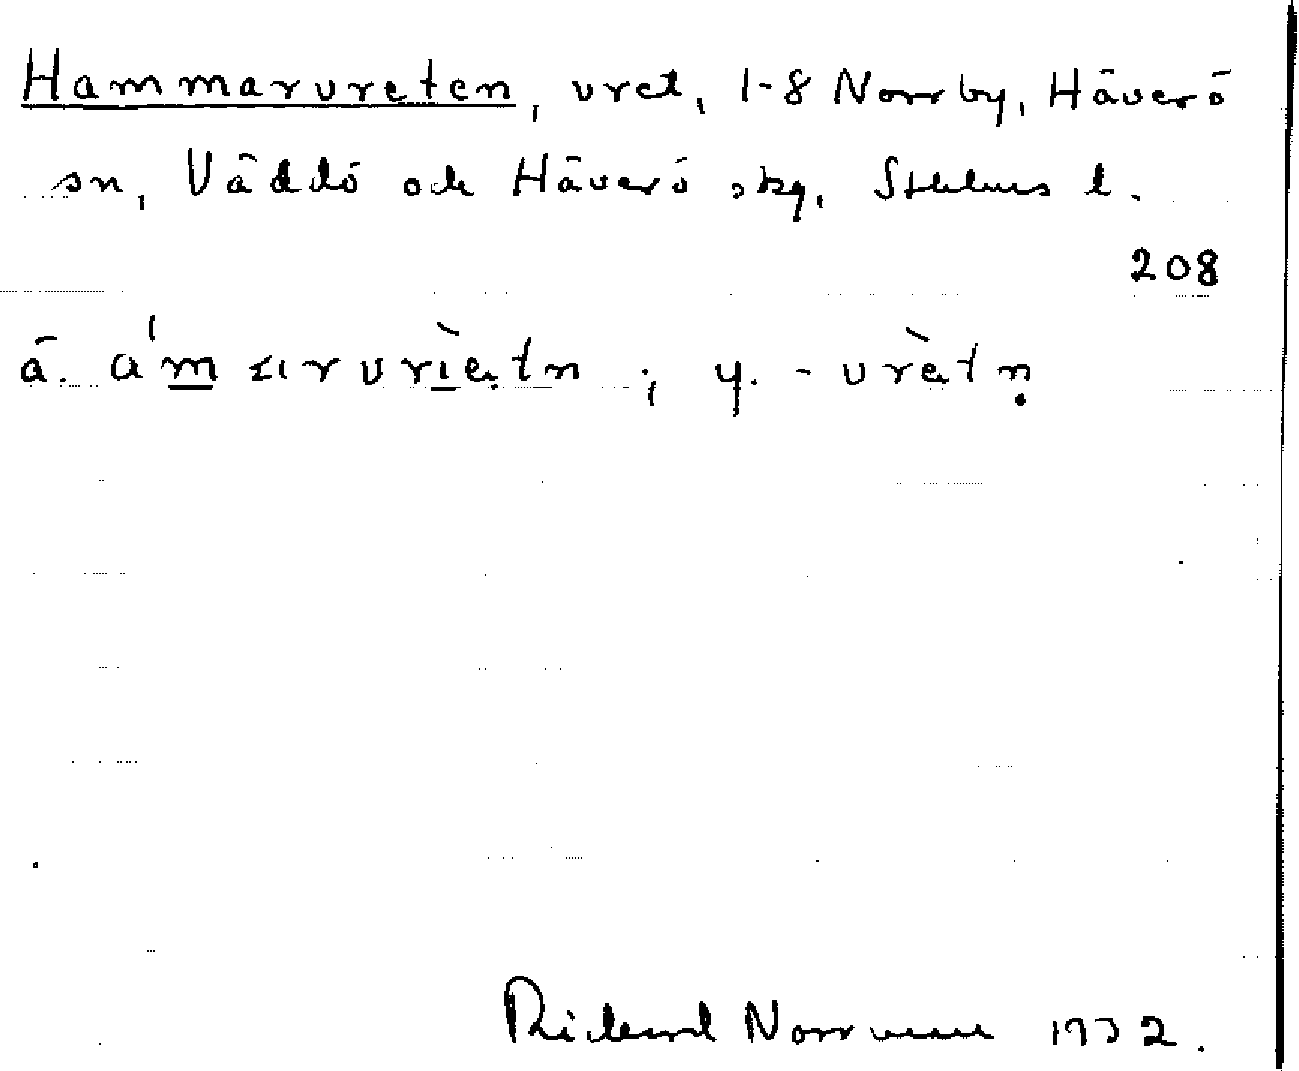 Hammarvreten, vret, 1-8 Norrby, Häverö
sn, Väddö och Häverö skg, Sthlms l.
208
ä. a'marvrìetn ; y. -vrètṇ
Rickard Norrman 1932.